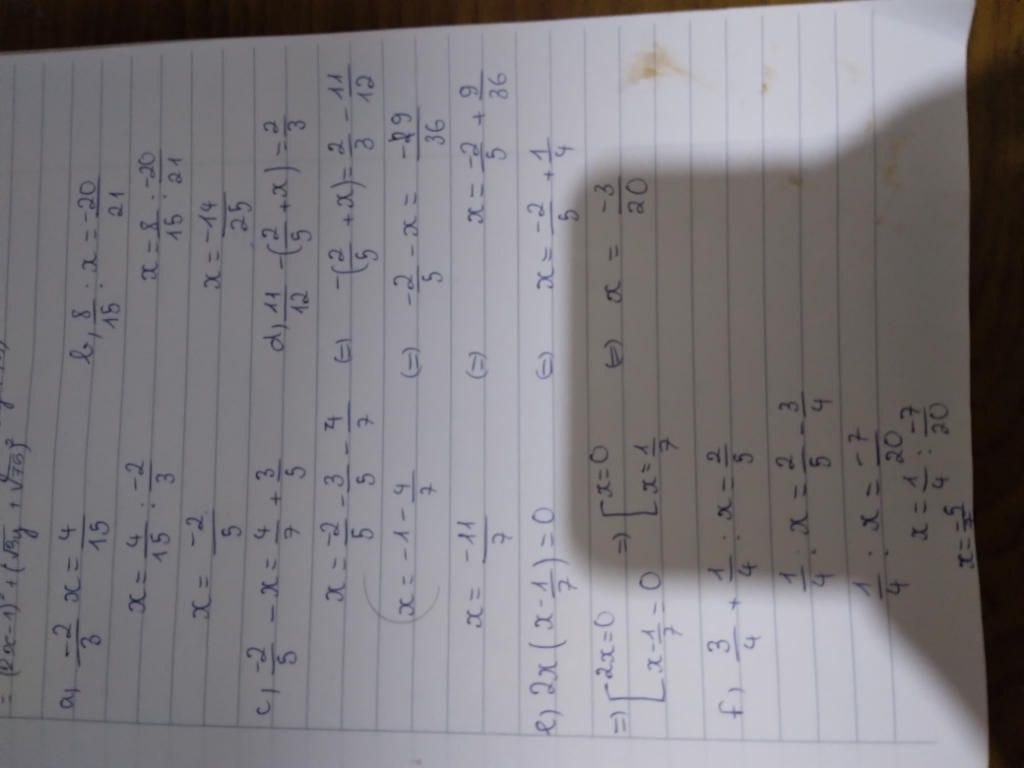 = (2x-1)² + (√13y + √78)²
a) -2/3 x = 4/15
x = 4/15 : -2/3
x = -2/5
b) 8/15 : x = -20/21
x = 8/15 : -20/21
x = -14/25
c) -2/5 - x = 4/7 + 3/5
x = -2/5 - 3/5 - 4/7
x = -1 - 4/7
x = -11/7
d) 11/12 - (2/5 + x) = 2/3
(=) -(2/5 + x) = 2/3 - 11/12
(=) -2/5 - x = -9/36
(=) x = -2/5 + 9/36
(=) x = -2/5 + 1/4
(=) x = -3/20
e) 2x(x - 1/7) = 0
=) [2x = 0 =) [x = 0
[x - 1/7 = 0 [x = 1/7
f) 3/4 + 1/4 : x = 2/5
1/4 : x = 2/5 - 3/4
1/4 : x = -7/20
x = 1/4 : -7/20
x = -5/7